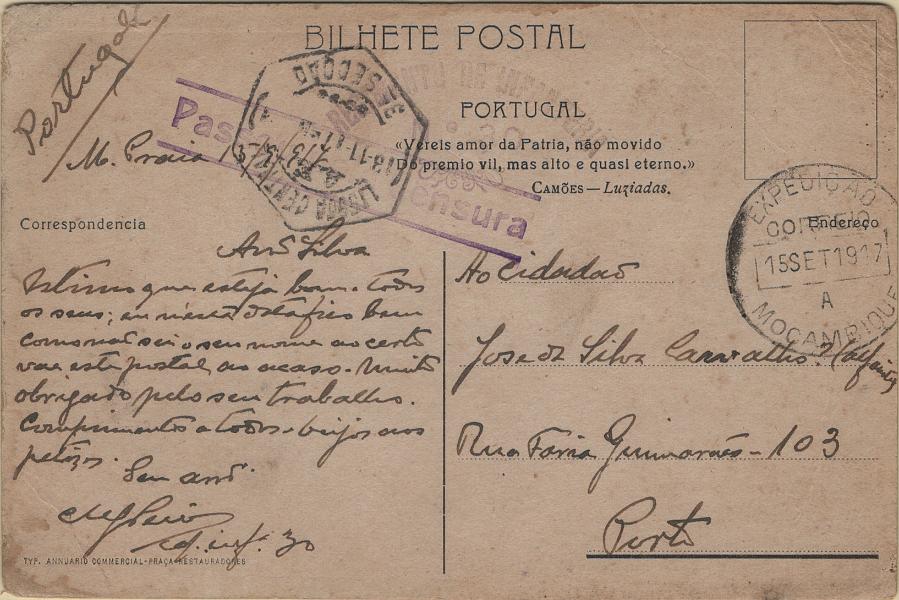 BILHETE POSTAL
Portugal
PORTUGAL
«Vereis amor da Patria, não movido
Do premio vil, mas alto e quasi eterno.»
CAMÕES — Luziadas.
M. Praia
Passou Censura
LISBOA CENTRAL
SECÇÃO
EXPEDIÇÃO
CORREIO
15SET1917
A
MOÇAMBIQUE
Correspondencia
Endereço
Silva
que esteja bom e todos
os seus; eu bem
como não sei o seu nome ao certo
vae este postal ao acaso. Muito
obrigado pelo seu trabalho.
Comprimentos a todos e beijos aos
Seu
inf. 30
Ao Cidadão
José da Silva Carvalho
Rua Faria Guimarães - 103
Porto
TYP. ANNUARIO COMMERCIAL-PRAÇA RESTAURADORES